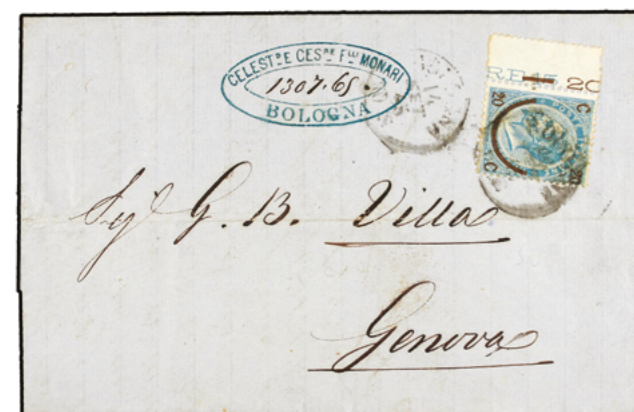 CELEST.NE CES.RE F.LLI MONARI
1307.65.
BOLOGNA
C 20
20 C
POSTE
Sig.r G. B. Villa
Genova